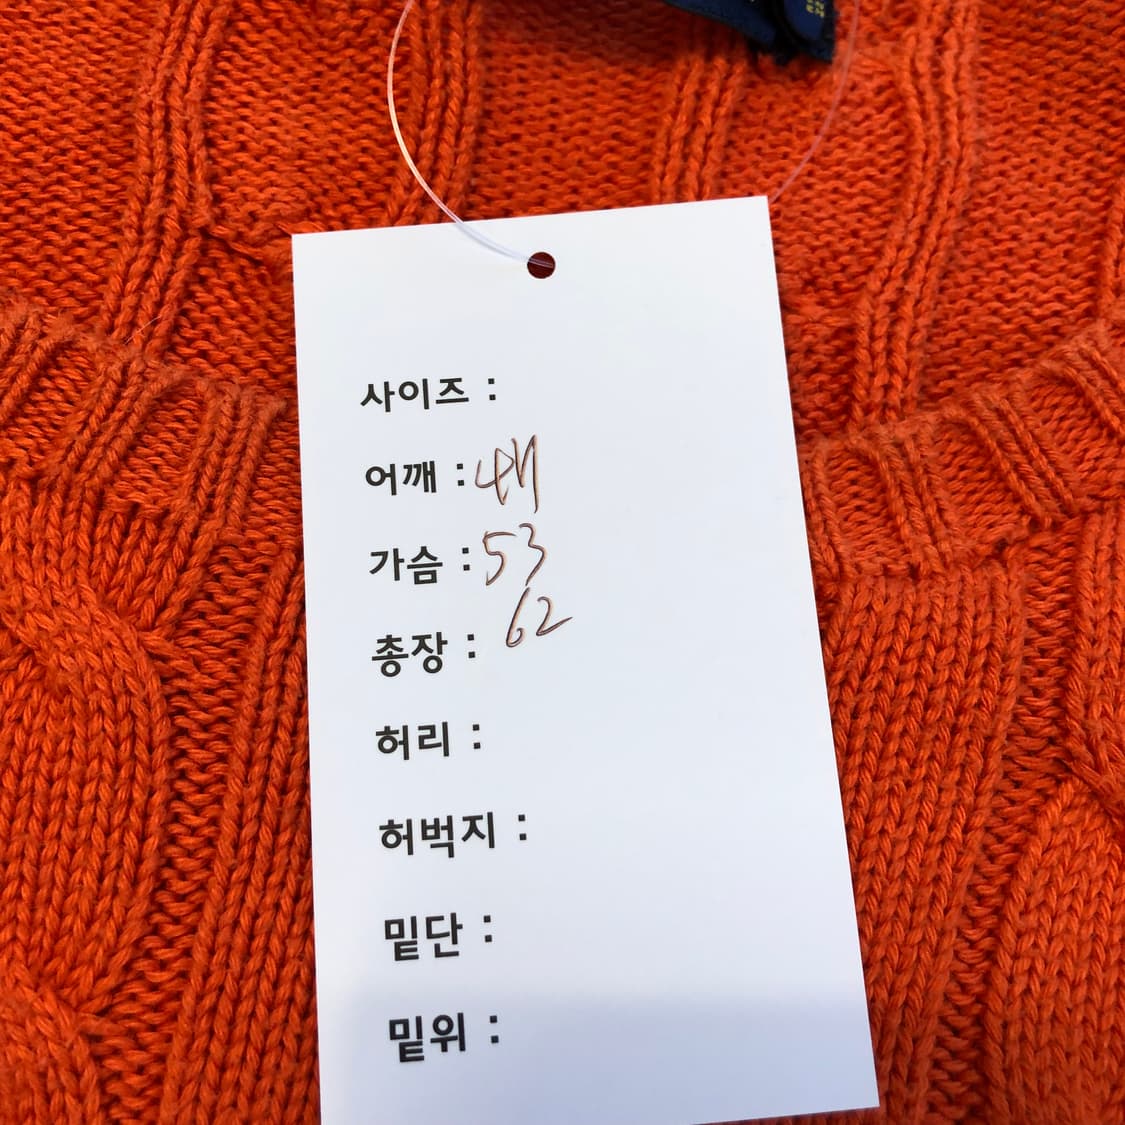 사이즈 :
어깨 :
가슴 : 53
총장 : 62
허리 :
허벅지 :
밑단 :
밑위 :